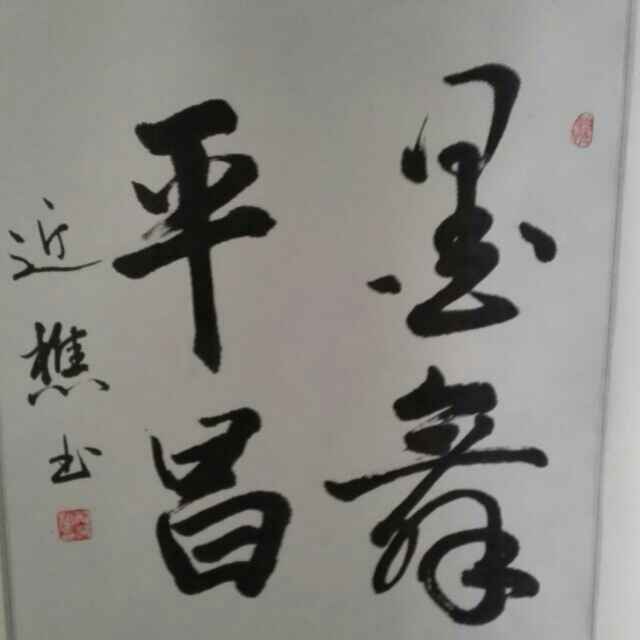 墨舞
平昌
近樵书